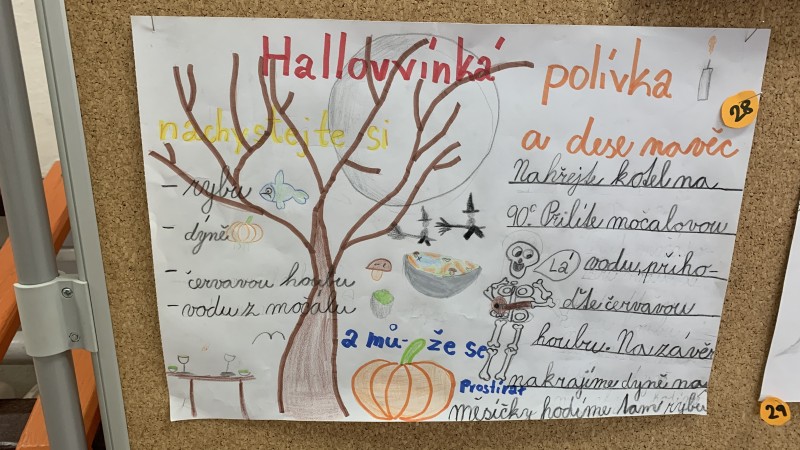 Hallovvínká
polívka
28
nachystejte si
a dese navěc
- rybu
- dýně
- červavou houbu
- vodu z močálu
Nahřejte kotel na
90°C Přilite močalovou
Lá
vodu, přiho-
ďte červavou
houbu. Na závěr
nakrajíme dýně na
měsíčky hodíme tam rybu
a mů-že se
Prostírat
29